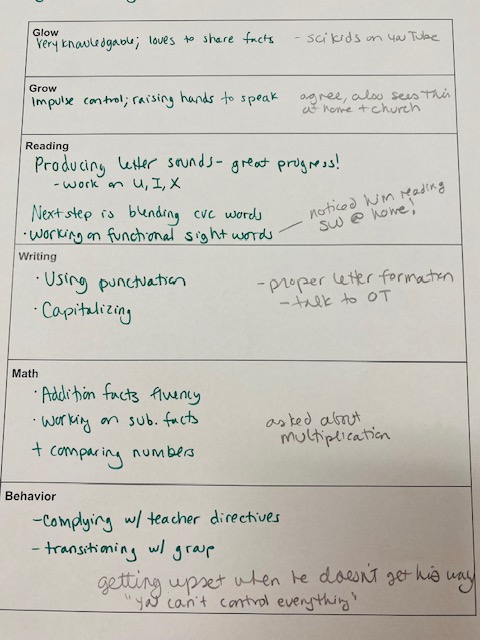 Glow
Very knowledgable; loves to share facts - scikids on YouTube
Grow
Impulse control; raising hands to speak agree, also sees this
at home + church
Reading
Producing letter sounds - great progress!
- work on U, I, X
Next step is blending cvc words
· Working on functional sight words
noticed him reading
SW @ home!
Writing
· Using punctuation
· Capitalizing
- proper letter formation
- talk to OT
Math
· Addition facts fluency
· Working on sub. facts
+ comparing numbers
asked about
multiplication
Behavior
- Complying w/ teacher directives
- transitioning w/ group
getting upset when he doesn't get his way
"you can't control everything"